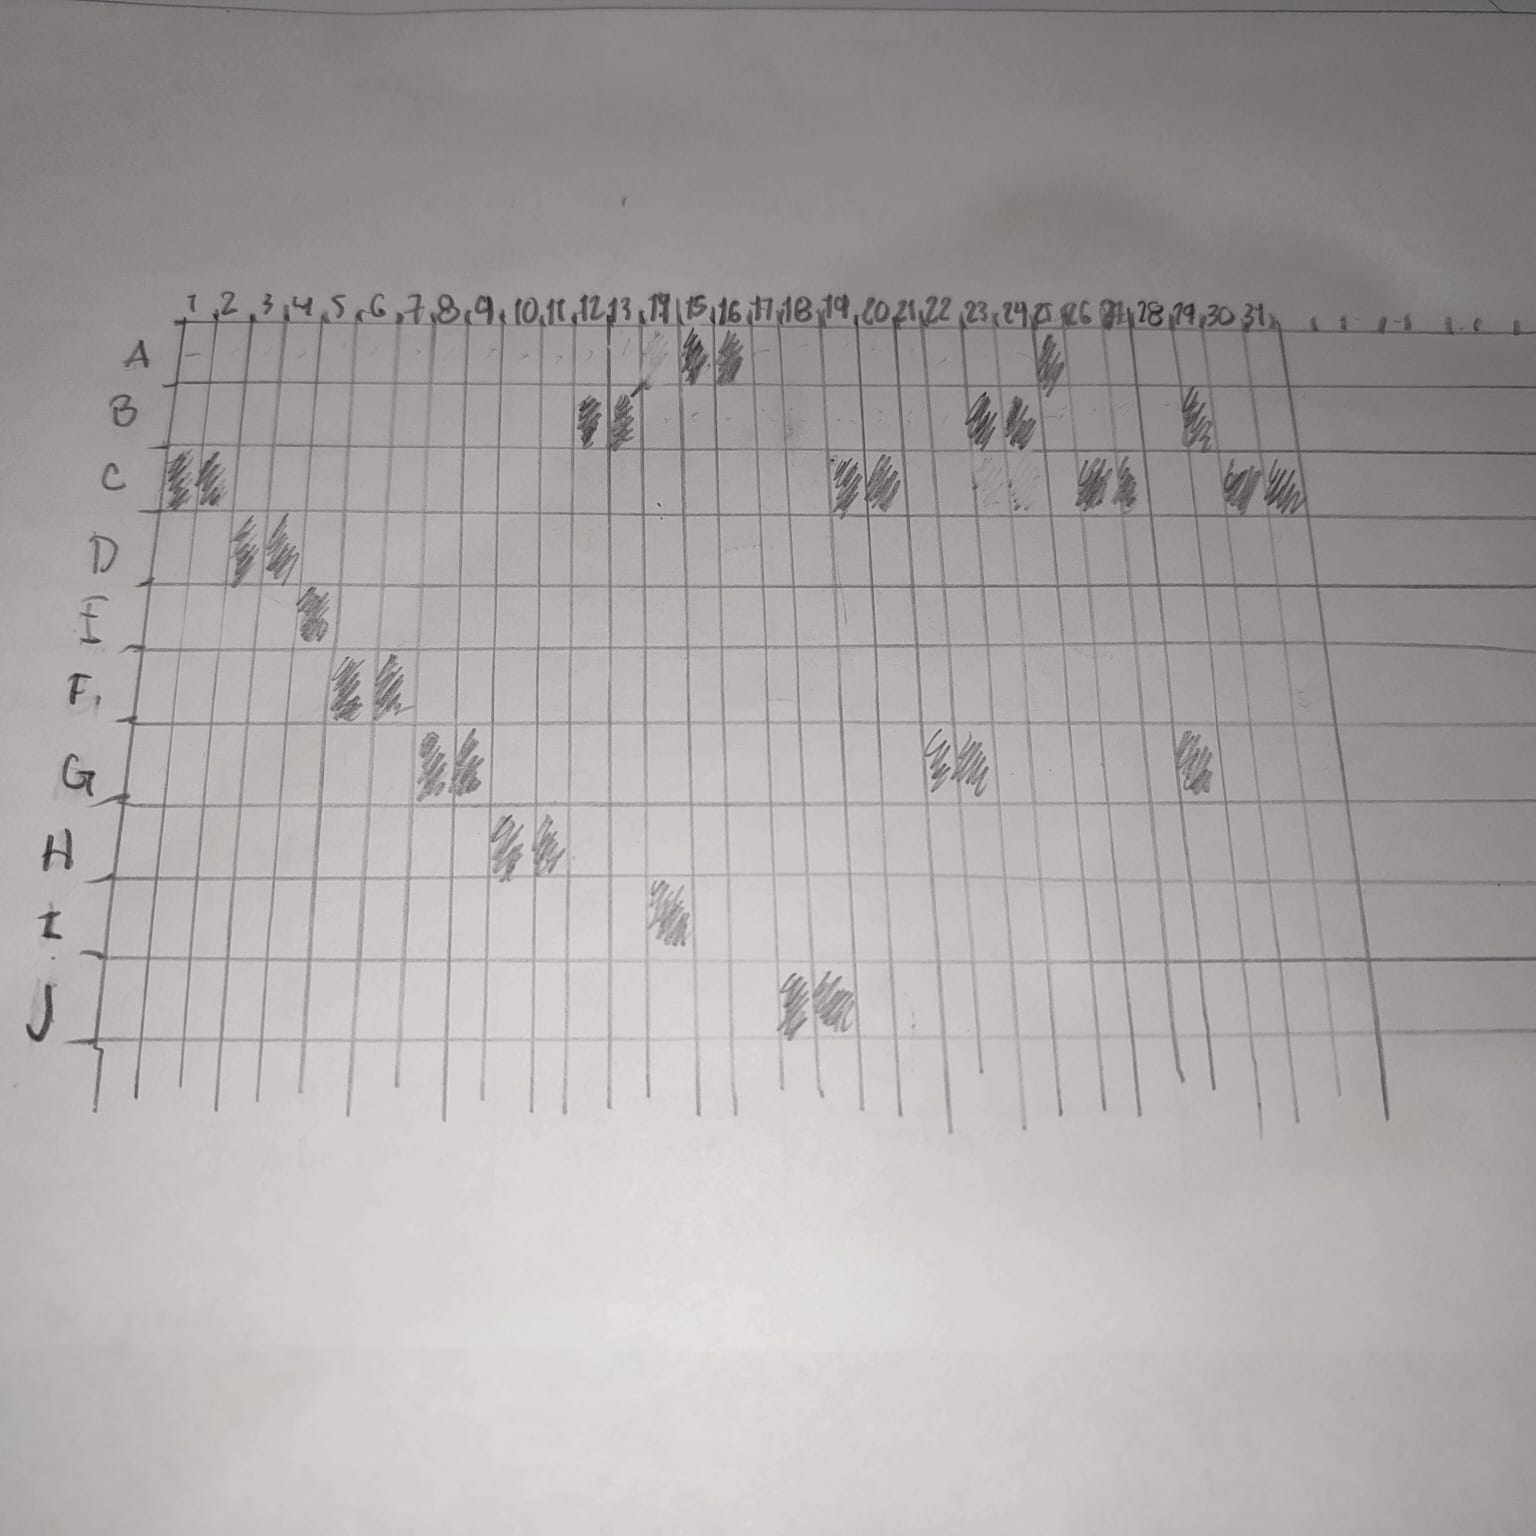 1 2 3 4 5 6 7 8 9 10 11 12 13 14 15 16 17 18 19 20 21 22 23 24 25 26 27 28 29 30 31
A
B
C
D
E
F
G
H
I
J